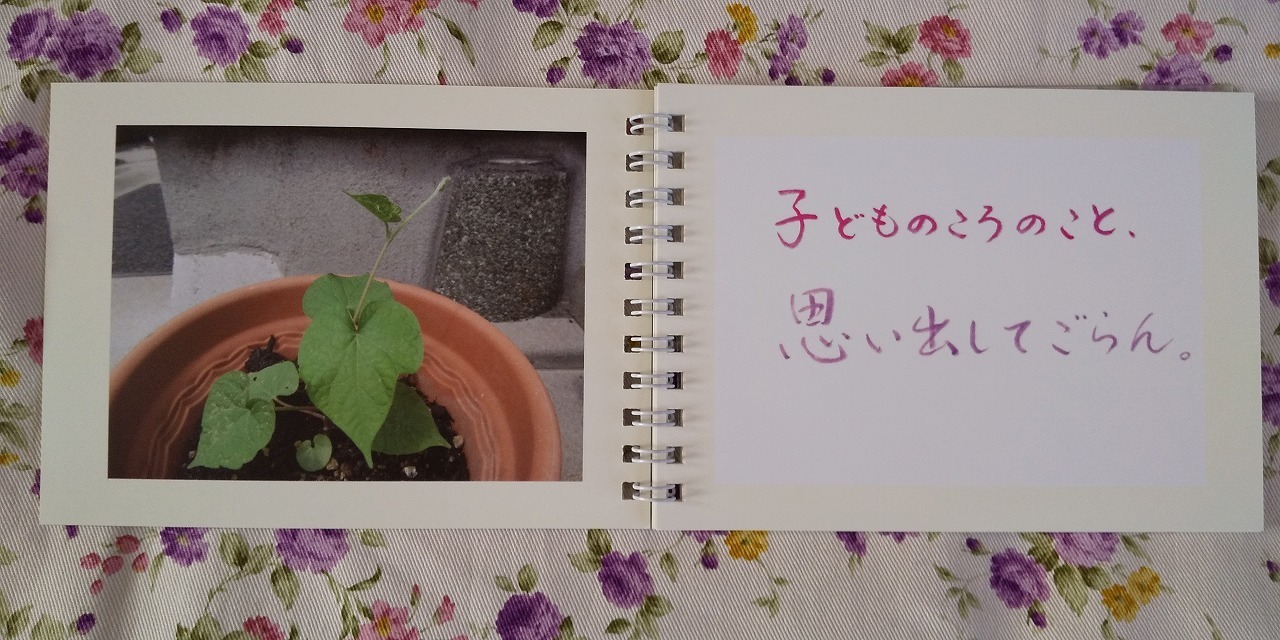 子どものころのこと、
思い出してごらん。